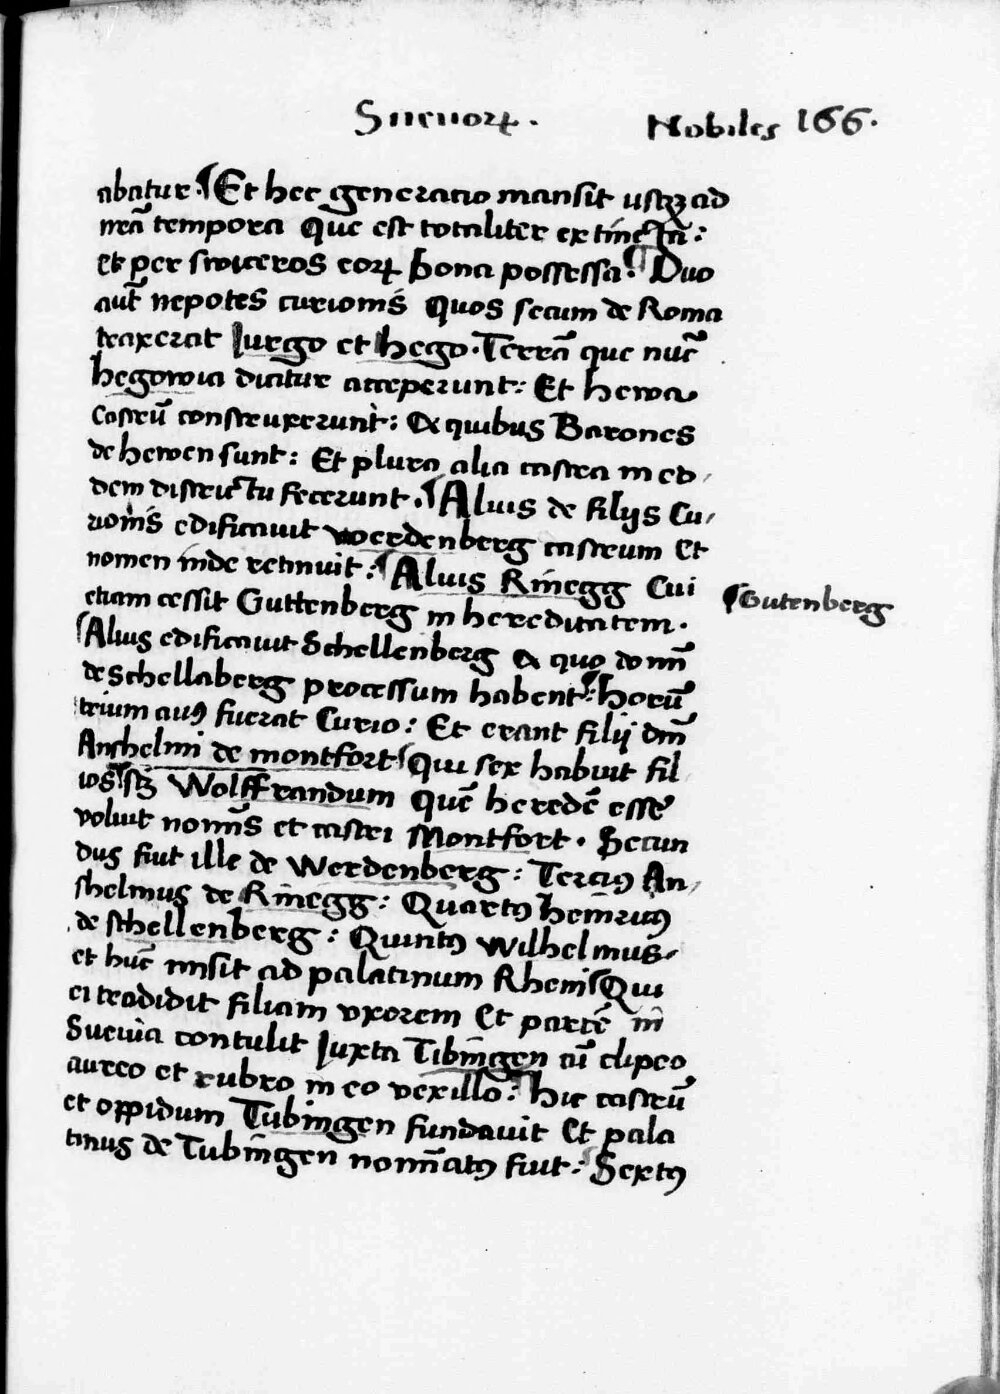 Sueuorꝝ. Nobiles 166.
abatur. Et hec generacio mansit usqꝫ ad
nr̃ã tempora Que est totaliter extincta:
et per swiceros eorꝝ bona possessa. Duo
aut̃ nepotes curionis Quos secum de Roma
traxerat Jurgo et hego. Terrã que nũc
hegowia dicitur acceperunt: Et hewa
Castrũ construxerunt: Ex quibus Barones
de hewen sunt: Et plura alia castra in eo
dem districtu fecerunt. Alius de filijs Cu
rionis edificauit werdenberg castrum Et
nomen inde retinuit: Alius Rinegg Cui
etiam cessit Guttenberg in hereditatem.
Gutenberg
Alius edificauit Schellenberg Ex quo domĩ
de Schellaberg processum habent: horũ
trium auꝰ fuerat Curio: Et erant filij dm̃
Anshelmi de montfort Qui sex habuit fil
ios sꝫ Wolffrandum Quẽ heredẽ esse
voluit nomĩs et castri Montfort. Secun
dus fuit ille de Werdenberg: Terciꝰ An
shelmus de Rinegg: Quartꝰ heinricꝰ
de schellenberg: Quintꝰ Wilhelmus
et hũc misit ad palatinum Rheni Qui
ei tradidit filiam vxorem Et partẽ in
Sueuia contulit Juxta Tibingen cũ clipeo
aureo et rubro in eo vexillo: hic castrũ
et oppidum Tubingen fundauit Et pala
tinus de Tubingen nomĩatꝰ fuit: Sextꝰ